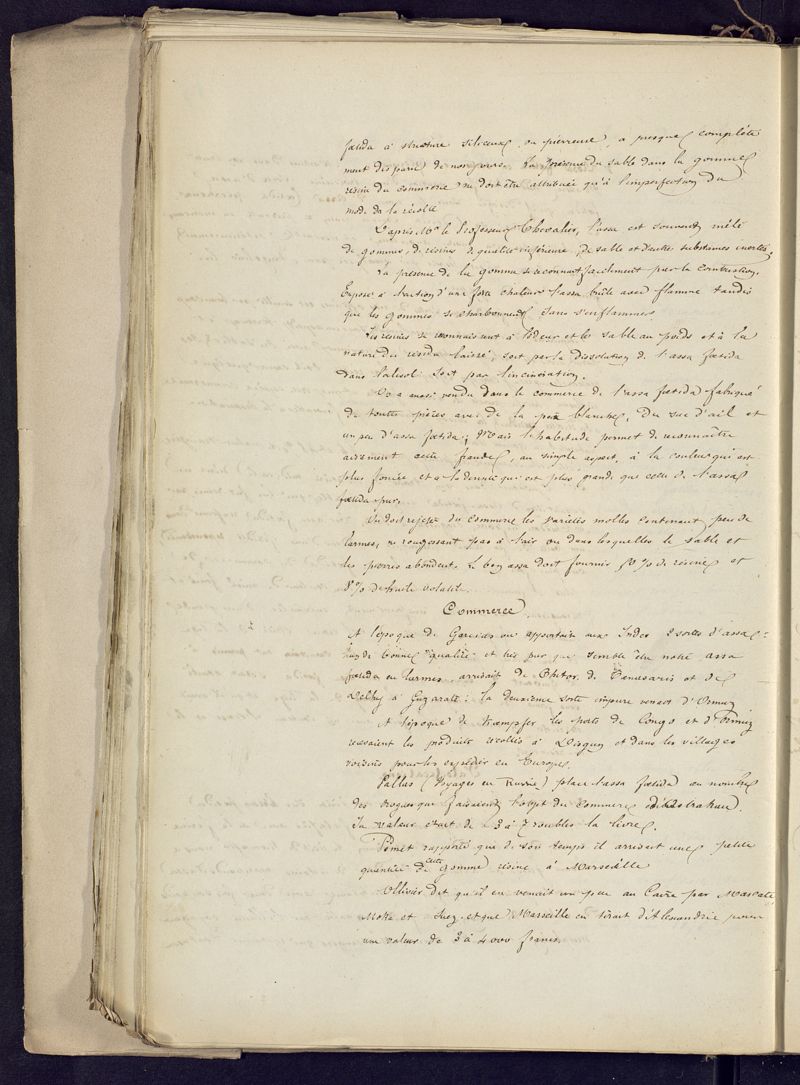 fœtida à structure siliceuse, ou pierreuse, a presque complète
ment disparu de nos jours. La présence du sable dans la gomme
résine du commerce ne doit être attribuée qu'à l'imperfection du
mode de la récolte
D'après Mr le Professeur Chevalier, l'assa est souvent mêlé
de gommes, de résines de qualité inférieure, de sable et d'autres substances inertes.
La présence de la gomme se reconnait facilement par la combustion.
Exposé à l'action d'une forte chaleur l'assa brûle avec flamme tandis
que les gommes se charbonnent sans s'enflammer
Les résines se reconnaissent à l'odeur et le sable au poids et à la
nature du résidu laissé, soit par la dissolution de l'assa fœtida
dans l'alcool soit par l'incinération.
On a aussi vendu dans le commerce de l'assa fœtida fabriqué
de toutes pièces avec de la poix blanche, du suc d'ail et
un peu d'assa fœtida; Mais l'habitude permet de reconnaître
aisément cette fraude, au simple aspect, à la couleur qui est
plus foncée et à la densité qui est plus grande que celle de l'assa
fœtida pur.
On doit rejeter du commerce les variétés molles contenant peu de
larmes, ne rougissant pas à l'air ou dans lesquelles le sable et
les pierres abondent. Le bon assa doit fournir 50 % de résine et
5 % d'huile volatile.
Commerce
A l'époque de Garcias on apportait aux Indes 2 sortes d'assa:
l'un de bonne qualité et très pur que semble être notre assa
fœtida en larmes arrivait de Chitor, de et de
Delhy à Guzarate: la deuxième sorte impure venait d'Ormuz
A l'époque de Kæmpfer les ports de Congo et d'Ormuz
recevaient les produits récoltés à Disgun et dans les villages
voisins pour les expédier en Europe.
Pallas (Voyages en Russie) place l'assa fœtida au nombre
des drogues qui faisaient l'objet du commerce d'Astrakan.
Sa valeur était de 3 à 7 roubles la livre.
Pomet rapporte que de son temps il arrivait une petite
quantité de cette gomme résine à Marseille
Ollivier dit qu'il en venait un peu au Caire par Mascate,
Moka et Suez et que Marseille en tirait d'Alexandrie pour
une valeur de 3 à 4000 francs